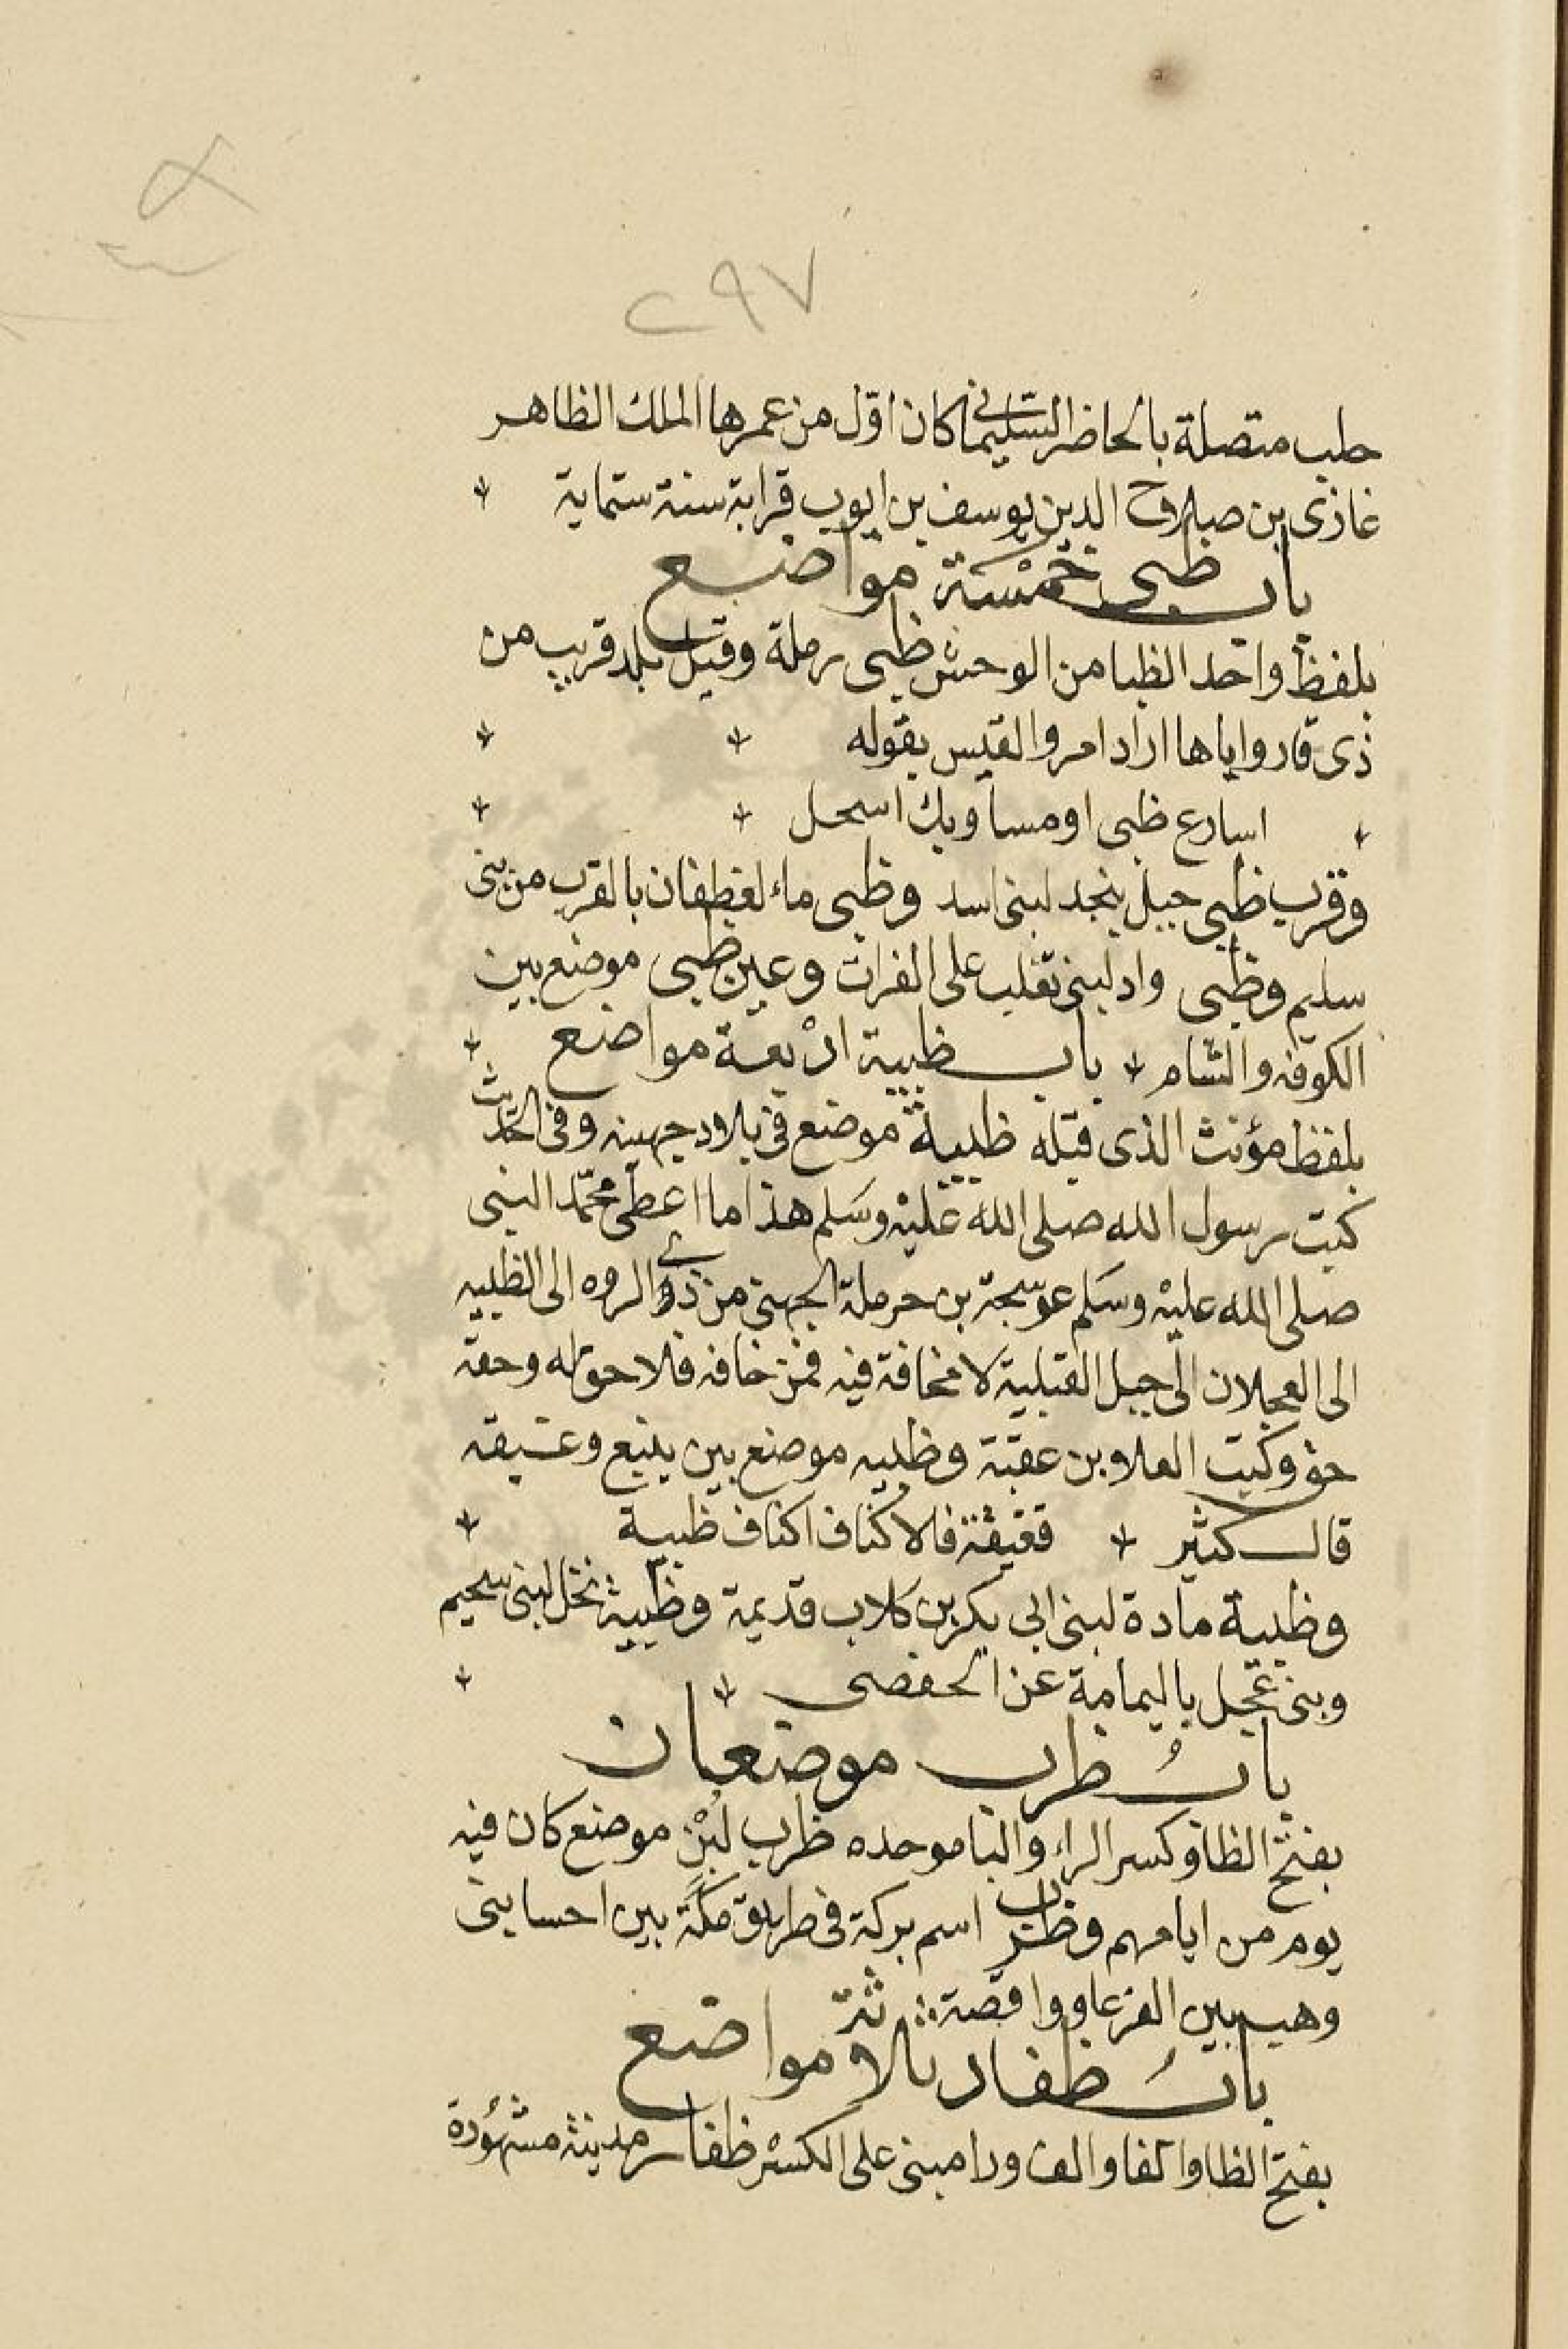 ٢٩٧
حلب متصلة بالحاضر السليمانى كان اوّل من عمرها الملك الظاهر
غازى بن صلاح الدين يوسف بن ايوب قرابة سنة ستماية
باب ظبى خمْسَة مواضع
بلفظ واحد الظبا من الوحش ظبى رملة وقيل بلد قريب من
ذى قار واياها اراد امروالقيس بقوله
اسارع ظبى او مساويك اسحل
وقرب ظبى جبل بنجد لبنى اسد وظبى ماء لغطفان بالقرب من بنى
سليم وظبى واد لبنى تغلب على الفرات وعين ظبى موضع بين
الكوفه والشام باب ظبية ارْبعة مواضع
بلفظ مؤنث الذى قبله ظبية موضع فى بلاد جهينه وفى الحديث
كتب رسول الله صلى الله عليْه وسَلم هذا ما اعطى محمّد النبى
صلى الله عليْه وسَلم عوسجة بن حرملة الجهنى من ذى المروه الى الظبيه
الى العجلان الى جبل القبلية لا مخافة فيه فمن خافه فلا حق له وحقه
حق وكتب العلا بن عقبة وظبيه موضع بين ينبع وغيقه
قال كثير فغيقة فالاكناف اكناف ظبية
وظبية مادة لبنى ابى بكر بن كلاب قديمة وظبية نخل لبنى سحيم
وبنى عجل باليمامة عن الحفصى
بابُ ظرب موضعان
بفتح الظا وكسر الراء والبا موحده ظرب لُبْنٍ موضع كان فيه
يوم من ايامهم وظرب اسم بركة فى طريق مكّة بين احسا بنى
وهيب بين القرعا وواقصة
بابُ ظفار ثلاثة مواضع
بفتح الظا والفا والف ورا مبنى على الكسْر ظفار مدينة مشهُورة